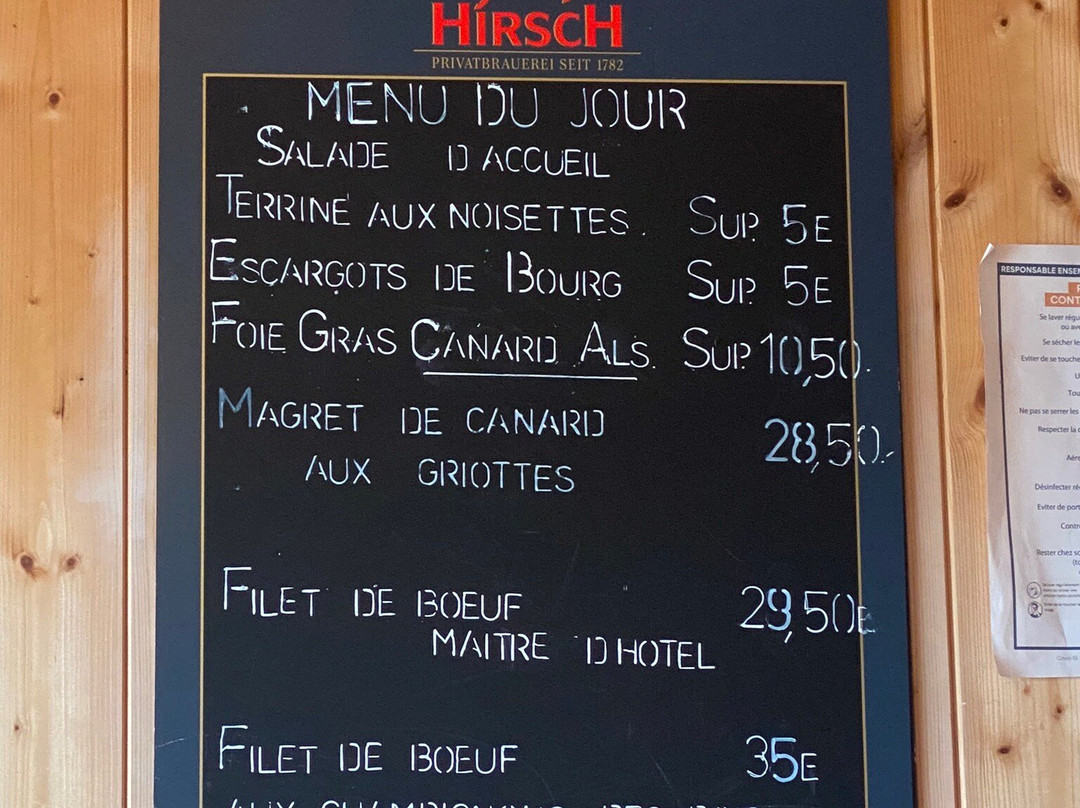 HIRSCH
PRIVATBRAUEREI SEIT 1782
MENU DU JOUR
SALADE D ACCUEIL
TERRINE AUX NOISETTES. SUP. 5E
ESCARGOTS DE BOURG SUP. 5E
FOIE GRAS CANARD ALS. SUP. 10,50.
MAGRET DE CANARD 28,50.-
AUX GRIOTTES
FILET DE BOEUF 29,50E
MAITRE D HOTEL
FILET DE BOEUF 35E
RESPONSABLE ENSEM
CONT
Se laver régu
ou ave
Se sécher le
Eviter de se touche
U
Tou
Ne pas se serrer les
Respecter la d
Aére
Désinfecter ré
Eviter de port
Contr
Rester chez so